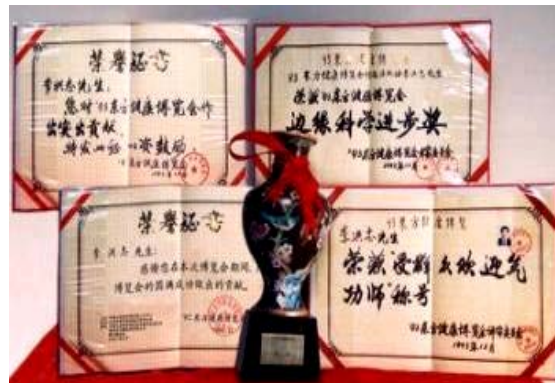 荣誉证书
李洪志先生:
您对'93东方健康博览会作
出突出贡献,
特发此证以资鼓励。
'93东方健康博览会
荣获'93东方健康博览会
边缘科学进步奖
'93东方健康博览会评审委员会
1993年12月
荣誉证书
李洪志先生:
感谢您在本次博览会期间,
博览会的圆满成功做出的贡献。
'93东方健康博览会
李洪志先生
荣获“受群众欢迎气
功师”称号
'93东方健康博览会评审委员会
1993年12月